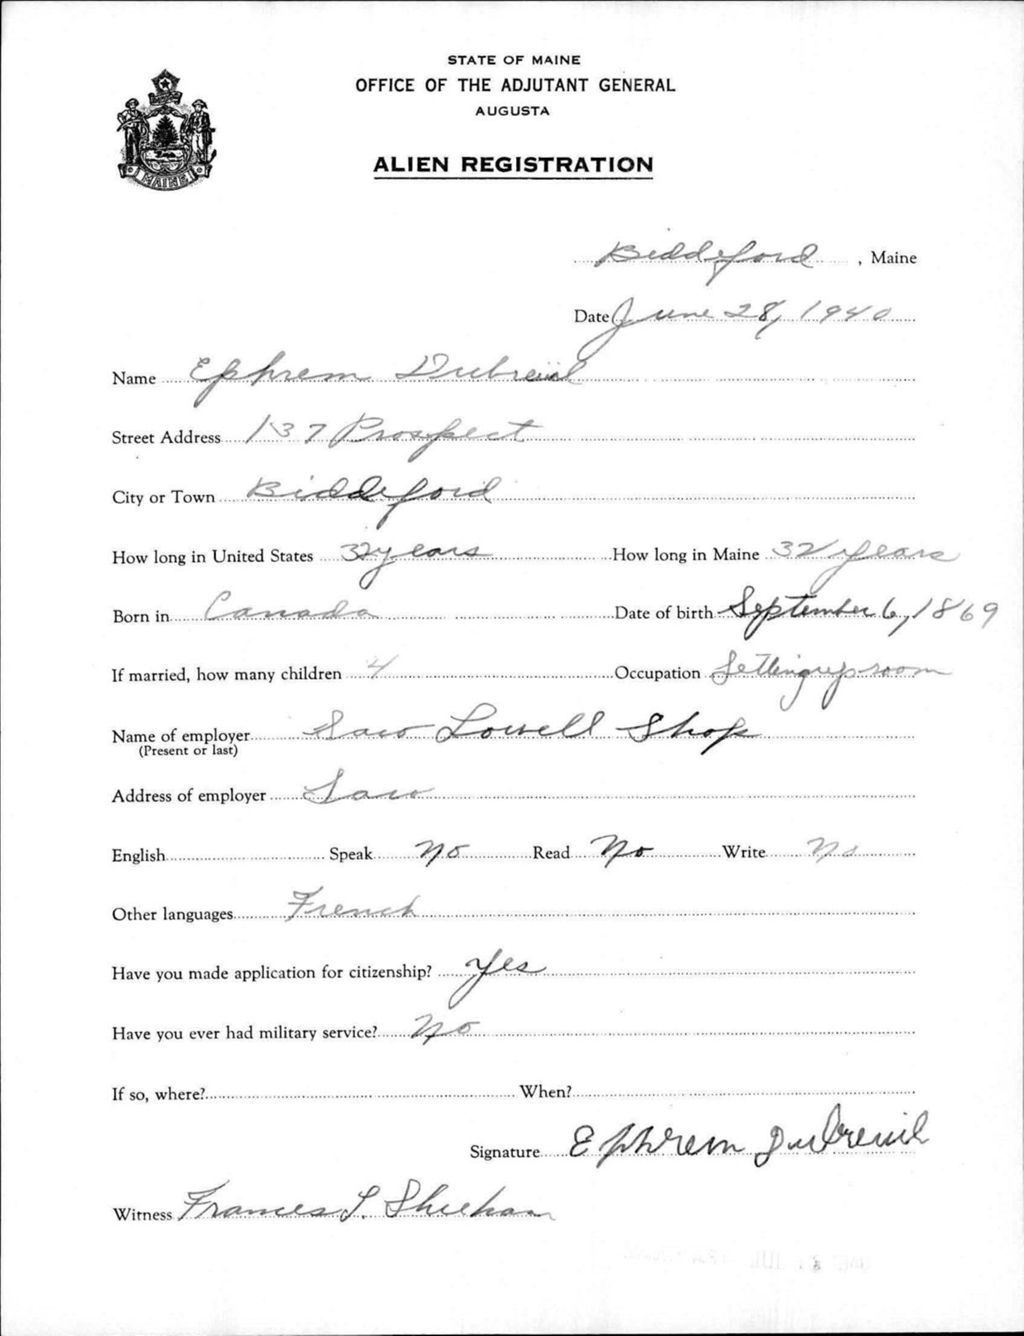 STATE OF MAINE
OFFICE OF THE ADJUTANT GENERAL
AUGUSTA
ALIEN REGISTRATION
MAINE
Biddeford, Maine
Date June 28, 1940
Name Ephrem Dubreuil
Street Address 137 Prospect
City or Town Biddeford
How long in United States 32 years How long in Maine 32 years
Born in Canada Date of birth September 6, 1869
If married, how many children 4 Occupation Setting up room
Name of employer Saco Lowell Shop
(Present or last)
Address of employer Saco
English Speak No Read No Write No
Other languages French
Have you made application for citizenship? Yes
Have you ever had military service? No
If so, where? When?
Signature Ephrem Dubreuil
Witness Frances L. Sheehan